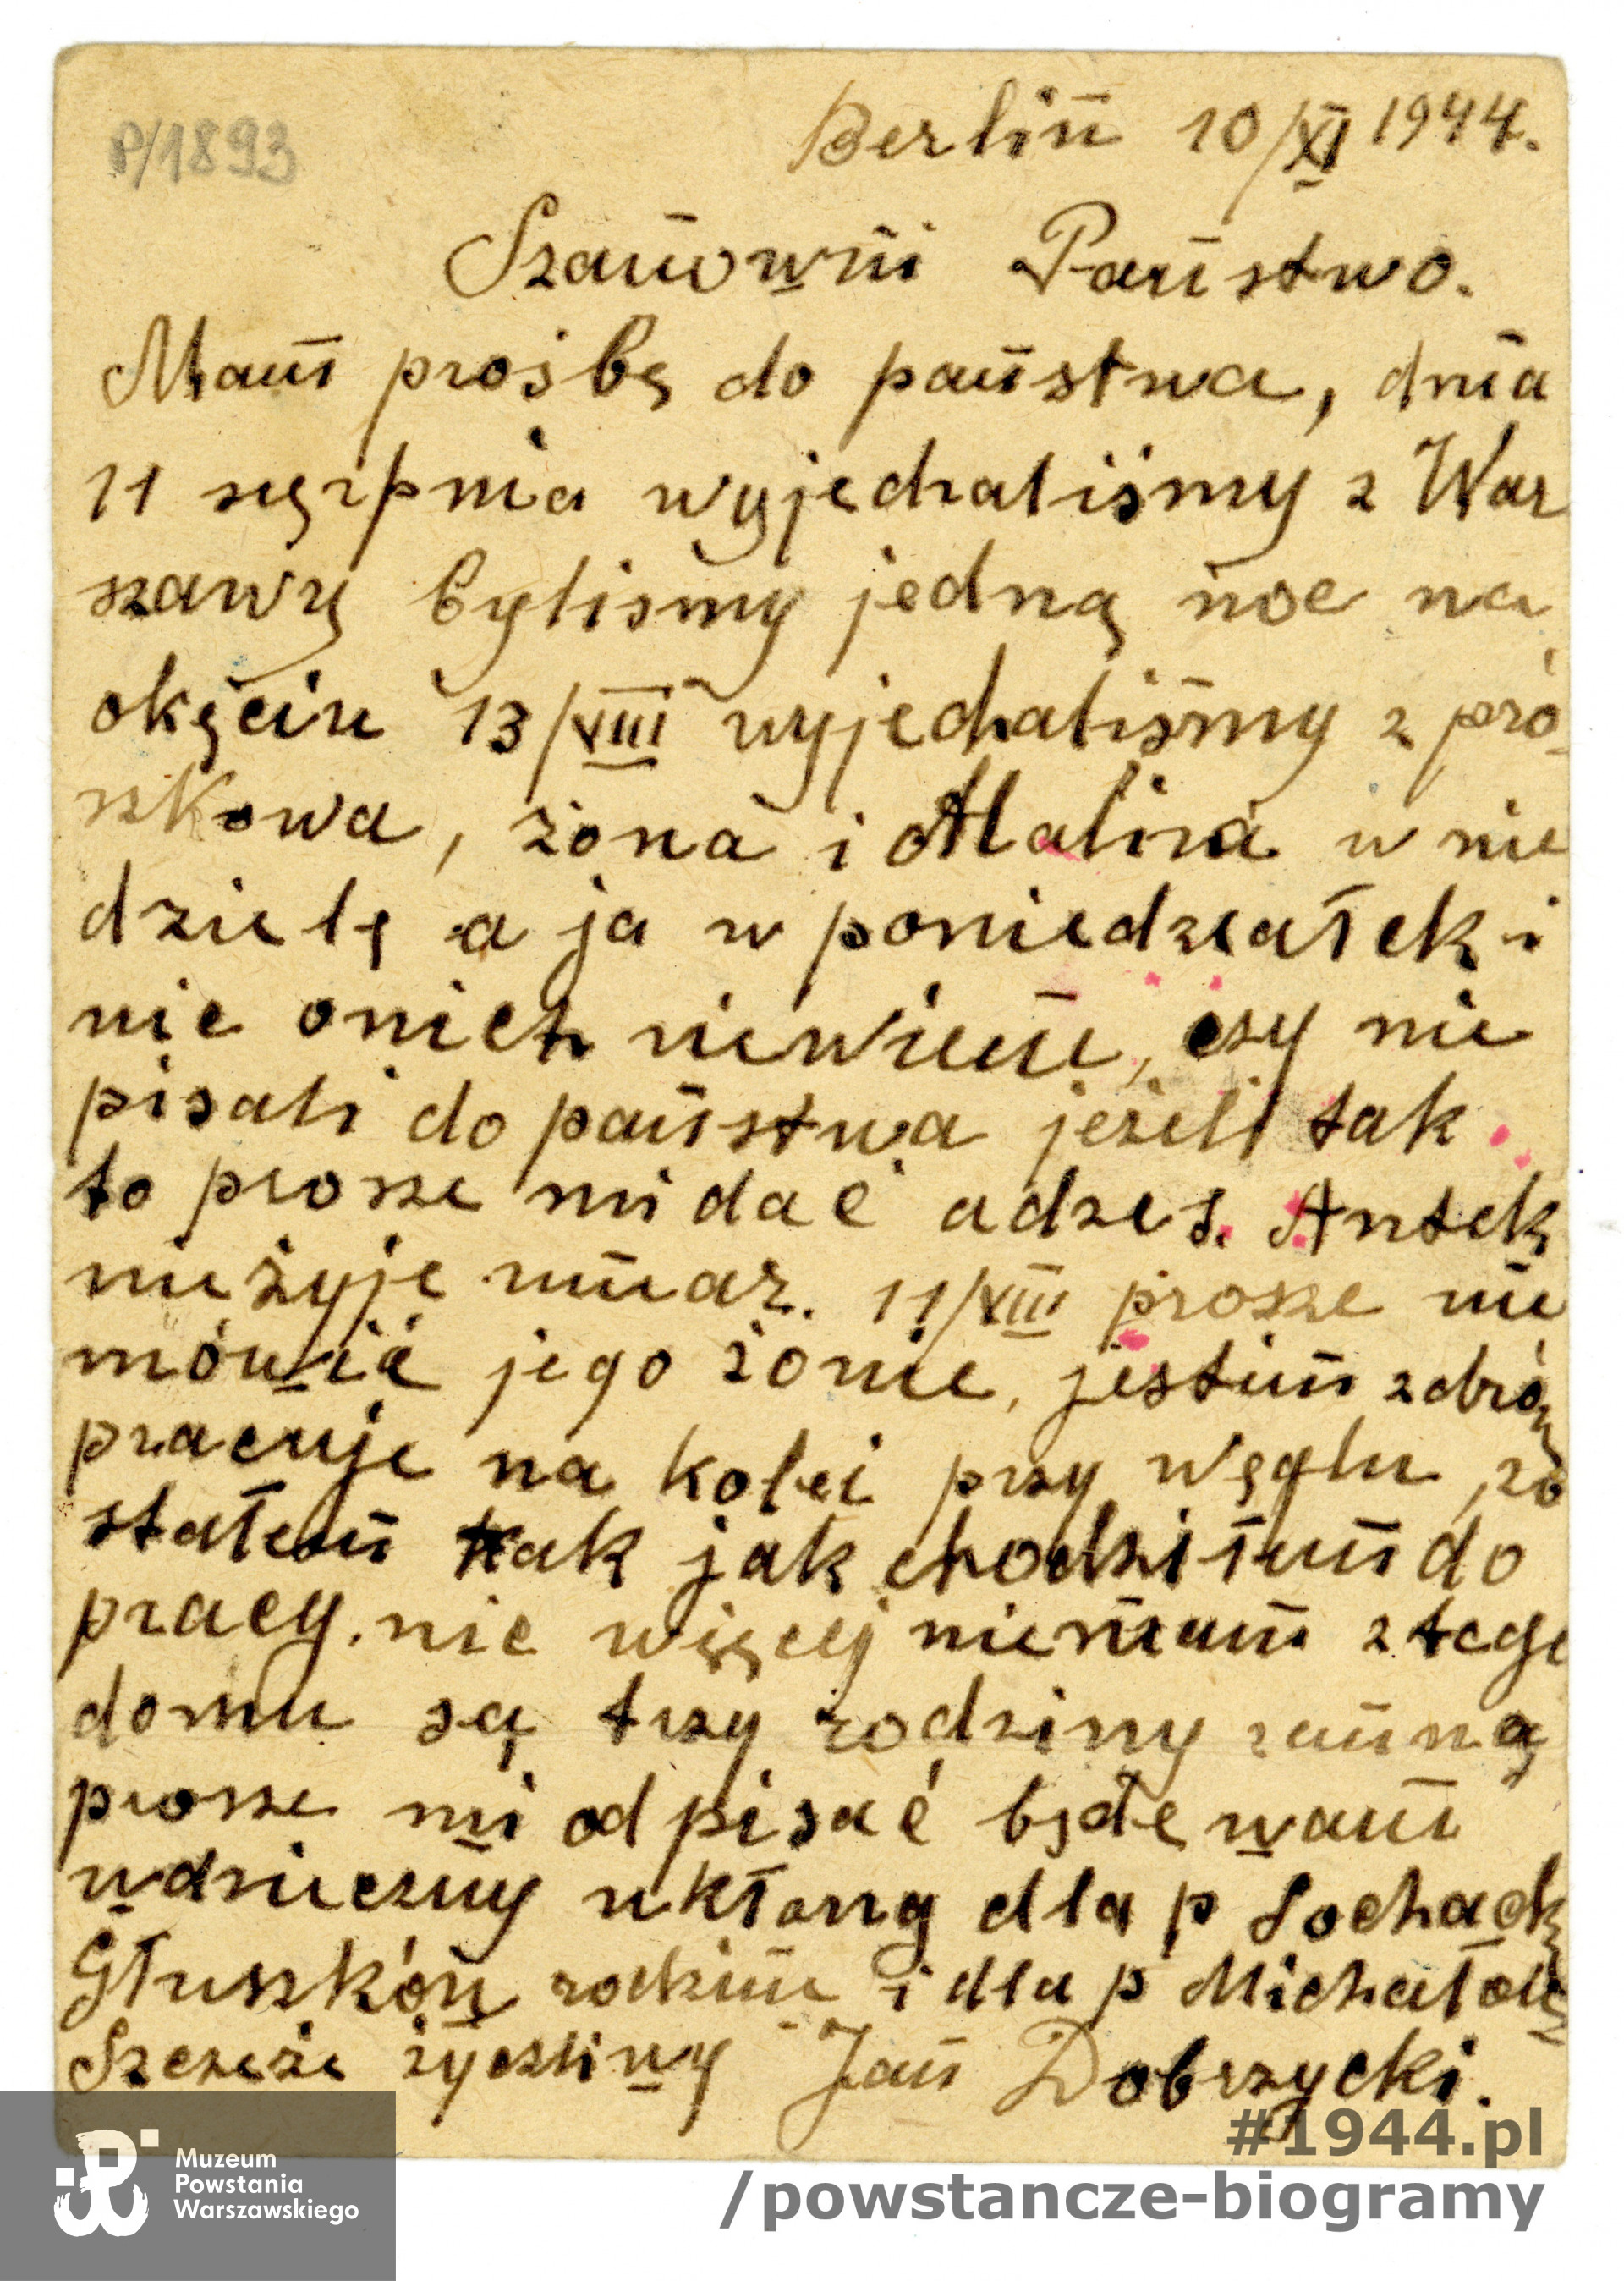 P/1893
Berlin 10/XI 1944.
Szanowni Państwo.
Mam prośbę do państwa, dnia
11 sięrpnia wyjechaliśmy z War
szawy byliśmy jedną noc na
okęciu 13/VIII wyjechaliśmy z pró
szkowa, żona i Malina w nie
dzielę a ja w poniedziałek i
nic onich niewiem, czy nie
pisali do państwa jeżeli tak
to prosze mi dać adres. Antek
nie żyje zmar. 11/VIII prosze nie
mówić jego żonie, jestem zdrów
pracuje na kolei przy węglu, zo
stałem tak jak chodziłem do
pracy. nic więcej niemam z tego
domu są trzy rodziny zemną
prosze mi odpisać będę wam
wdzieczny ukłony dla p Sochack
Głuszków rodzinie i dla p Michałow
Szczeże życzliwy Jan Dobrzycki.
Muzeum
Powstania
Warszawskiego
#1944.pl
/powstancze-biogramy